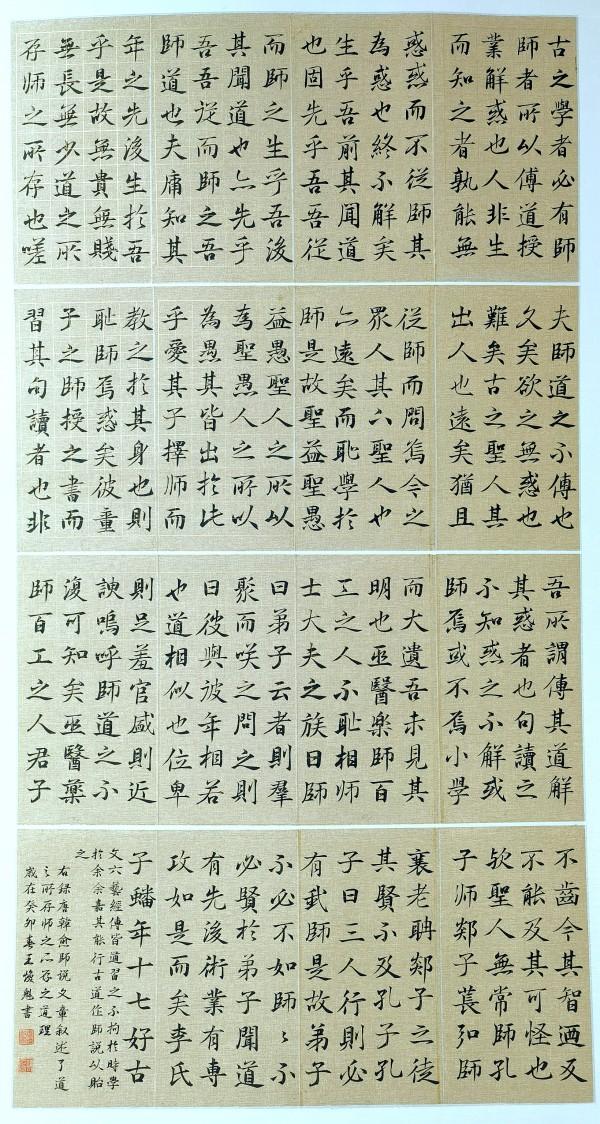 古之學者必有師
師者所以傳道授
業解惑也人非生
而知之者孰能無
惑惑而不從師其
為惑也終不解矣
生乎吾前其聞道
也固先乎吾吾從
而師之生乎吾後
其聞道也亦先乎
吾吾從而師之吾
師道也夫庸知其
年之先後生於吾
乎是故無貴無賤
無長無少道之所
存師之所存也嗟
夫師道之不傳也
久矣欲之無惑也
難矣古之聖人其
出人也遠矣猶且
從師而問焉今之
眾人其下聖人也
亦遠矣而恥學於
師是故聖益聖愚
益愚聖人之所以
為聖愚人之所以
為愚其皆出於此
乎愛其子擇師而
教之於其身也則
恥師焉惑矣彼童
子之師授之書而
習其句讀者也非
吾所謂傳其道解
其惑者也句讀之
不知惑之不解或
師焉或不焉小學
而大遺吾未見其
明也巫醫樂師百
工之人不恥相師
士大夫之族曰師
曰弟子云者則羣
聚而笑之問之則
曰彼與彼年相若
也道相似也位卑
則足羞官盛則近
諛嗚呼師道之不
復可知矣巫醫藥
師百工之人君子
不齒今其智迺反
不能及其可怪也
歟聖人無常師孔
子師郯子萇弘師
襄老聃郯子之徒
其賢不及孔子孔
子曰三人行則必
有我師是故弟子
不必不如師〻不
必賢於弟子聞道
有先後術業有專
攻如是而矣李氏
子蟠年十七好古
文六藝經傳皆通習之不拘於時學
於余余嘉其能行古道作師說以貽
之
右錄唐韓愈師說文章叙述了道
之所存師之所存之道理
歲在癸卯春王俊魁書